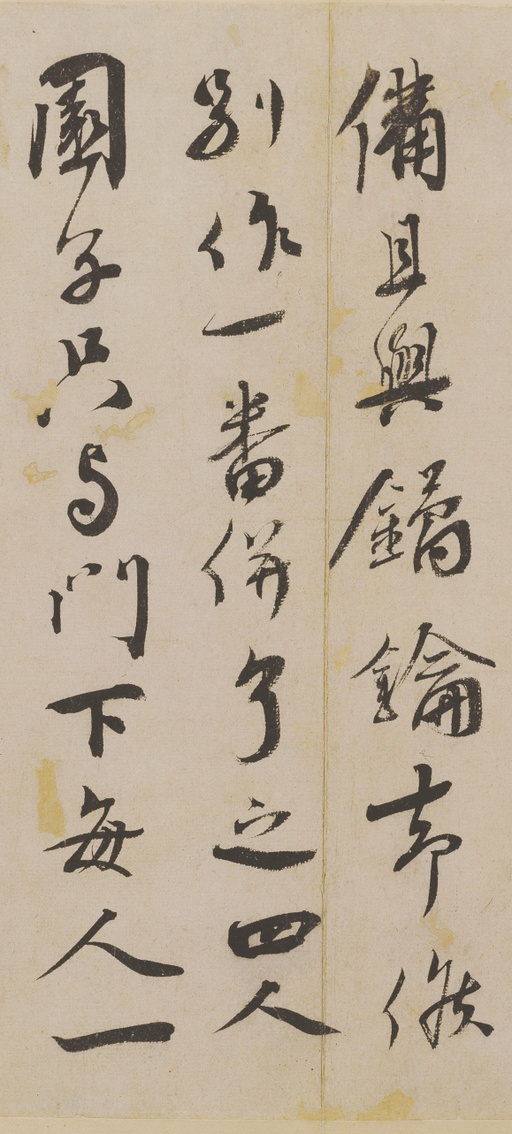 備且與鐍鑰却俟
別作一番併了之四人
園子只与門下每人一